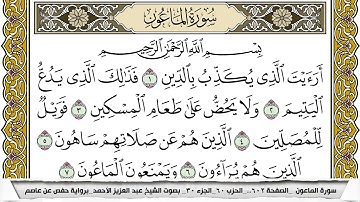 سُورَةُ الْمَاعُونِ
بِسْمِ اللَّهِ الرَّحْمَٰنِ الرَّحِيمِ
أَرَءَيْتَ الَّذِي يُكَذِّبُ بِالدِّينِ ١ فَذَٰلِكَ الَّذِي يَدُعُّ
الْيَتِيمَ ٢ وَلَا يَحُضُّ عَلَىٰ طَعَامِ الْمِسْكِينِ ٣ فَوَيْلٌ
لِّلْمُصَلِّينَ ٤ الَّذِينَ هُمْ عَن صَلَاتِهِمْ سَاهُونَ ٥
الَّذِينَ هُمْ يُرَاءُونَ ٦ وَيَمْنَعُونَ الْمَاعُونَ ٧
سورة الماعون _الصفحة ٦٠٢_ الحزب ٦٠_الجزء ٣٠_بصوت الشيخ عبد العزيز الأحمد_برواية حفص عن عاصم